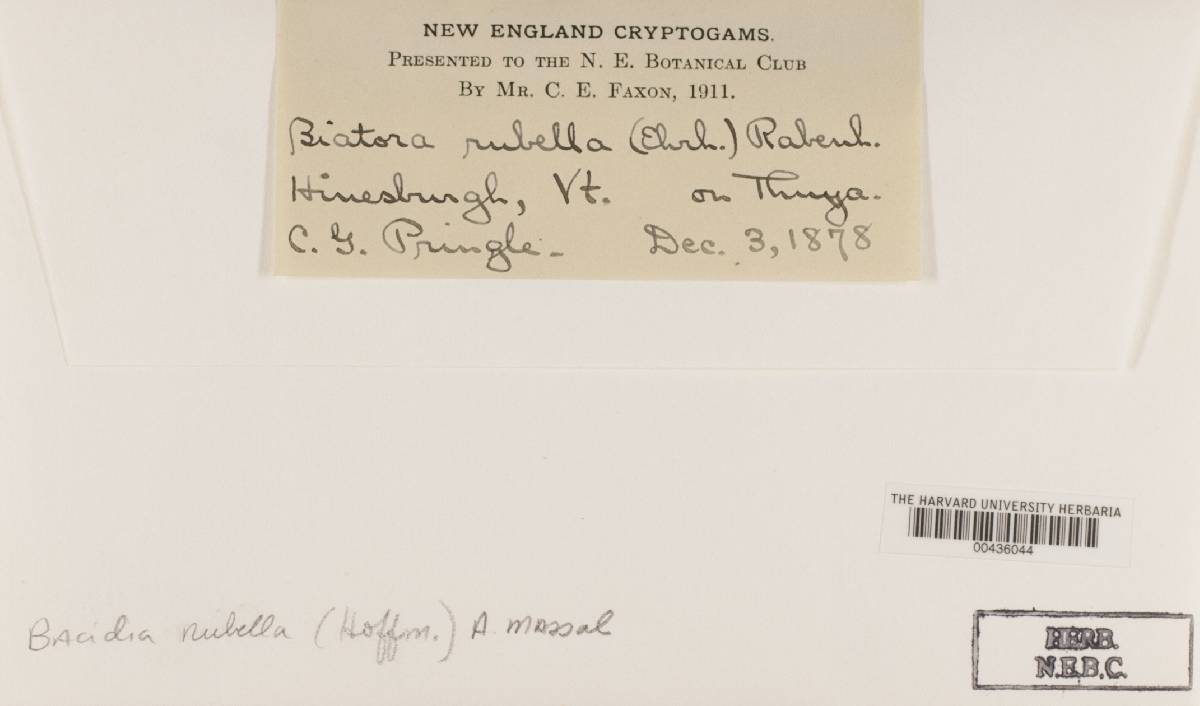 NEW ENGLAND CRYPTOGAMS.
PRESENTED TO THE N. E. BOTANICAL CLUB
BY MR. C. E. FAXON, 1911.
Biatora rubella (Ehrh.) Rabenh.
Hinesburgh, Vt. on Thuya.
C. G. Pringle. Dec. 3, 1878
THE HARVARD UNIVERSITY HERBARIA
00436044
Bacidia rubella (Hoffm.) A. Massal
HERB.
N.E.B.C.